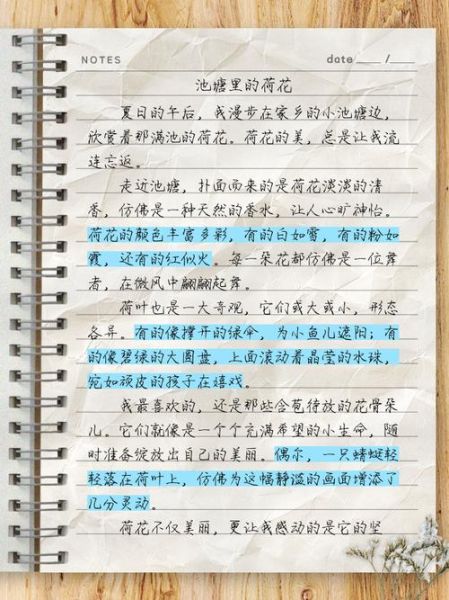 NOTES
date ____ /____
池塘里的荷花
夏日的午后，我漫步在家乡的小池塘边，
欣赏着那满池的荷花。荷花的美，总是让我流
连忘返。
走近池塘，扑面而来的是荷花淡淡的清
香，仿佛是一种天然的香水，让人心旷神怡。
荷花的颜色丰富多彩，有的白如雪，有的粉如
霞，还有的红似火。每一朵花都仿佛是一位舞
者，在微风中翩翩起舞。
荷叶也是一大奇观，它们或大或小，形态
各异。有的像撑开的绿伞，为小鱼儿遮阳；有
的像碧绿的大圆盘，上面滚动着晶莹的水珠，
宛如顽皮的孩子在嬉戏。
我最喜欢的，还是那些含苞待放的花骨朵
儿。它们就像是一个个充满希望的小生命，随
时准备绽放出自己的美丽。偶尔，一只蜻蜓轻
轻落在荷叶上，仿佛为这幅静谧的画面增添了
几分灵动。
荷花不仅美丽，更让我感动的是它的坚